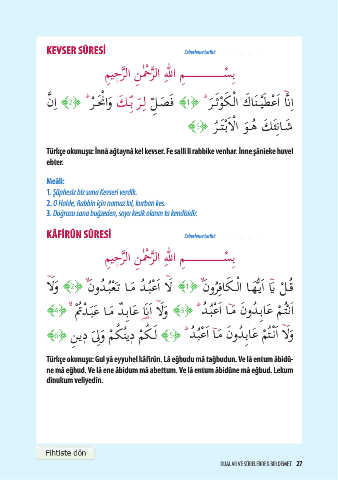 KEVSER SÛRESİ
بِسْــــــــمِ اللهِ الرَّحْمٰنِ الرَّحِيمِ
اِنَّٓا اَعْطَيْنَاكَ الْكَوْثَرَ ﴿1﴾ فَصَلِّ لِرَبِّكَ وَانْحَرْ ﴿2﴾ اِنَّ
شَانِئَكَ هُوَ الْاَبْتَرُ ﴿3﴾
Türkçe okunuşu: İnnâ ağtaynâ kel kevser. Fe salli li rabbike venhar. İnne şânieke huvel
ebter.
Meâli:
1. Şüphesiz biz sana Kevseri verdik.
2. O Halde, Rabbin için namaz kıl, kurban kes.
3. Doğrusu sana buğzeden, soyu kesik olanın ta kendisidir.
KÂFİRÛN SÛRESİ
بِسْــــــــمِ اللهِ الرَّحْمٰنِ الرَّحِيمِ
قُلْ يَٓا اَيُّهَا الْكَافِرُونَ ﴿1﴾ لَٓا اَعْبُدُ مَا تَعْبُدُونَ ﴿2﴾ وَلَٓا
اَنْتُمْ عَابِدُونَ مَٓا اَعْبُدُ ﴿3﴾ وَلَٓا اَنَا۬ عَابِدٌ مَا عَبَدْتُمْ ﴿4﴾
وَلَٓا اَنْتُمْ عَابِدُونَ مَٓا اَعْبُدُ ﴿5﴾ لَكُمْ دِينُكُمْ وَلِيَ دِينِ ﴿6﴾
Türkçe okunuşu: Gul yâ eyyuhel kâfirûn. Lâ eğbudu mâ tağbudun. Ve lâ entum âbidû-
ne mâ eğbud. Ve lâ ene âbidum mâ abettum. Ve lâ entum âbidûne mâ eğbud. Lekum
dinukum veliyedîn.
Fihriste dön
27